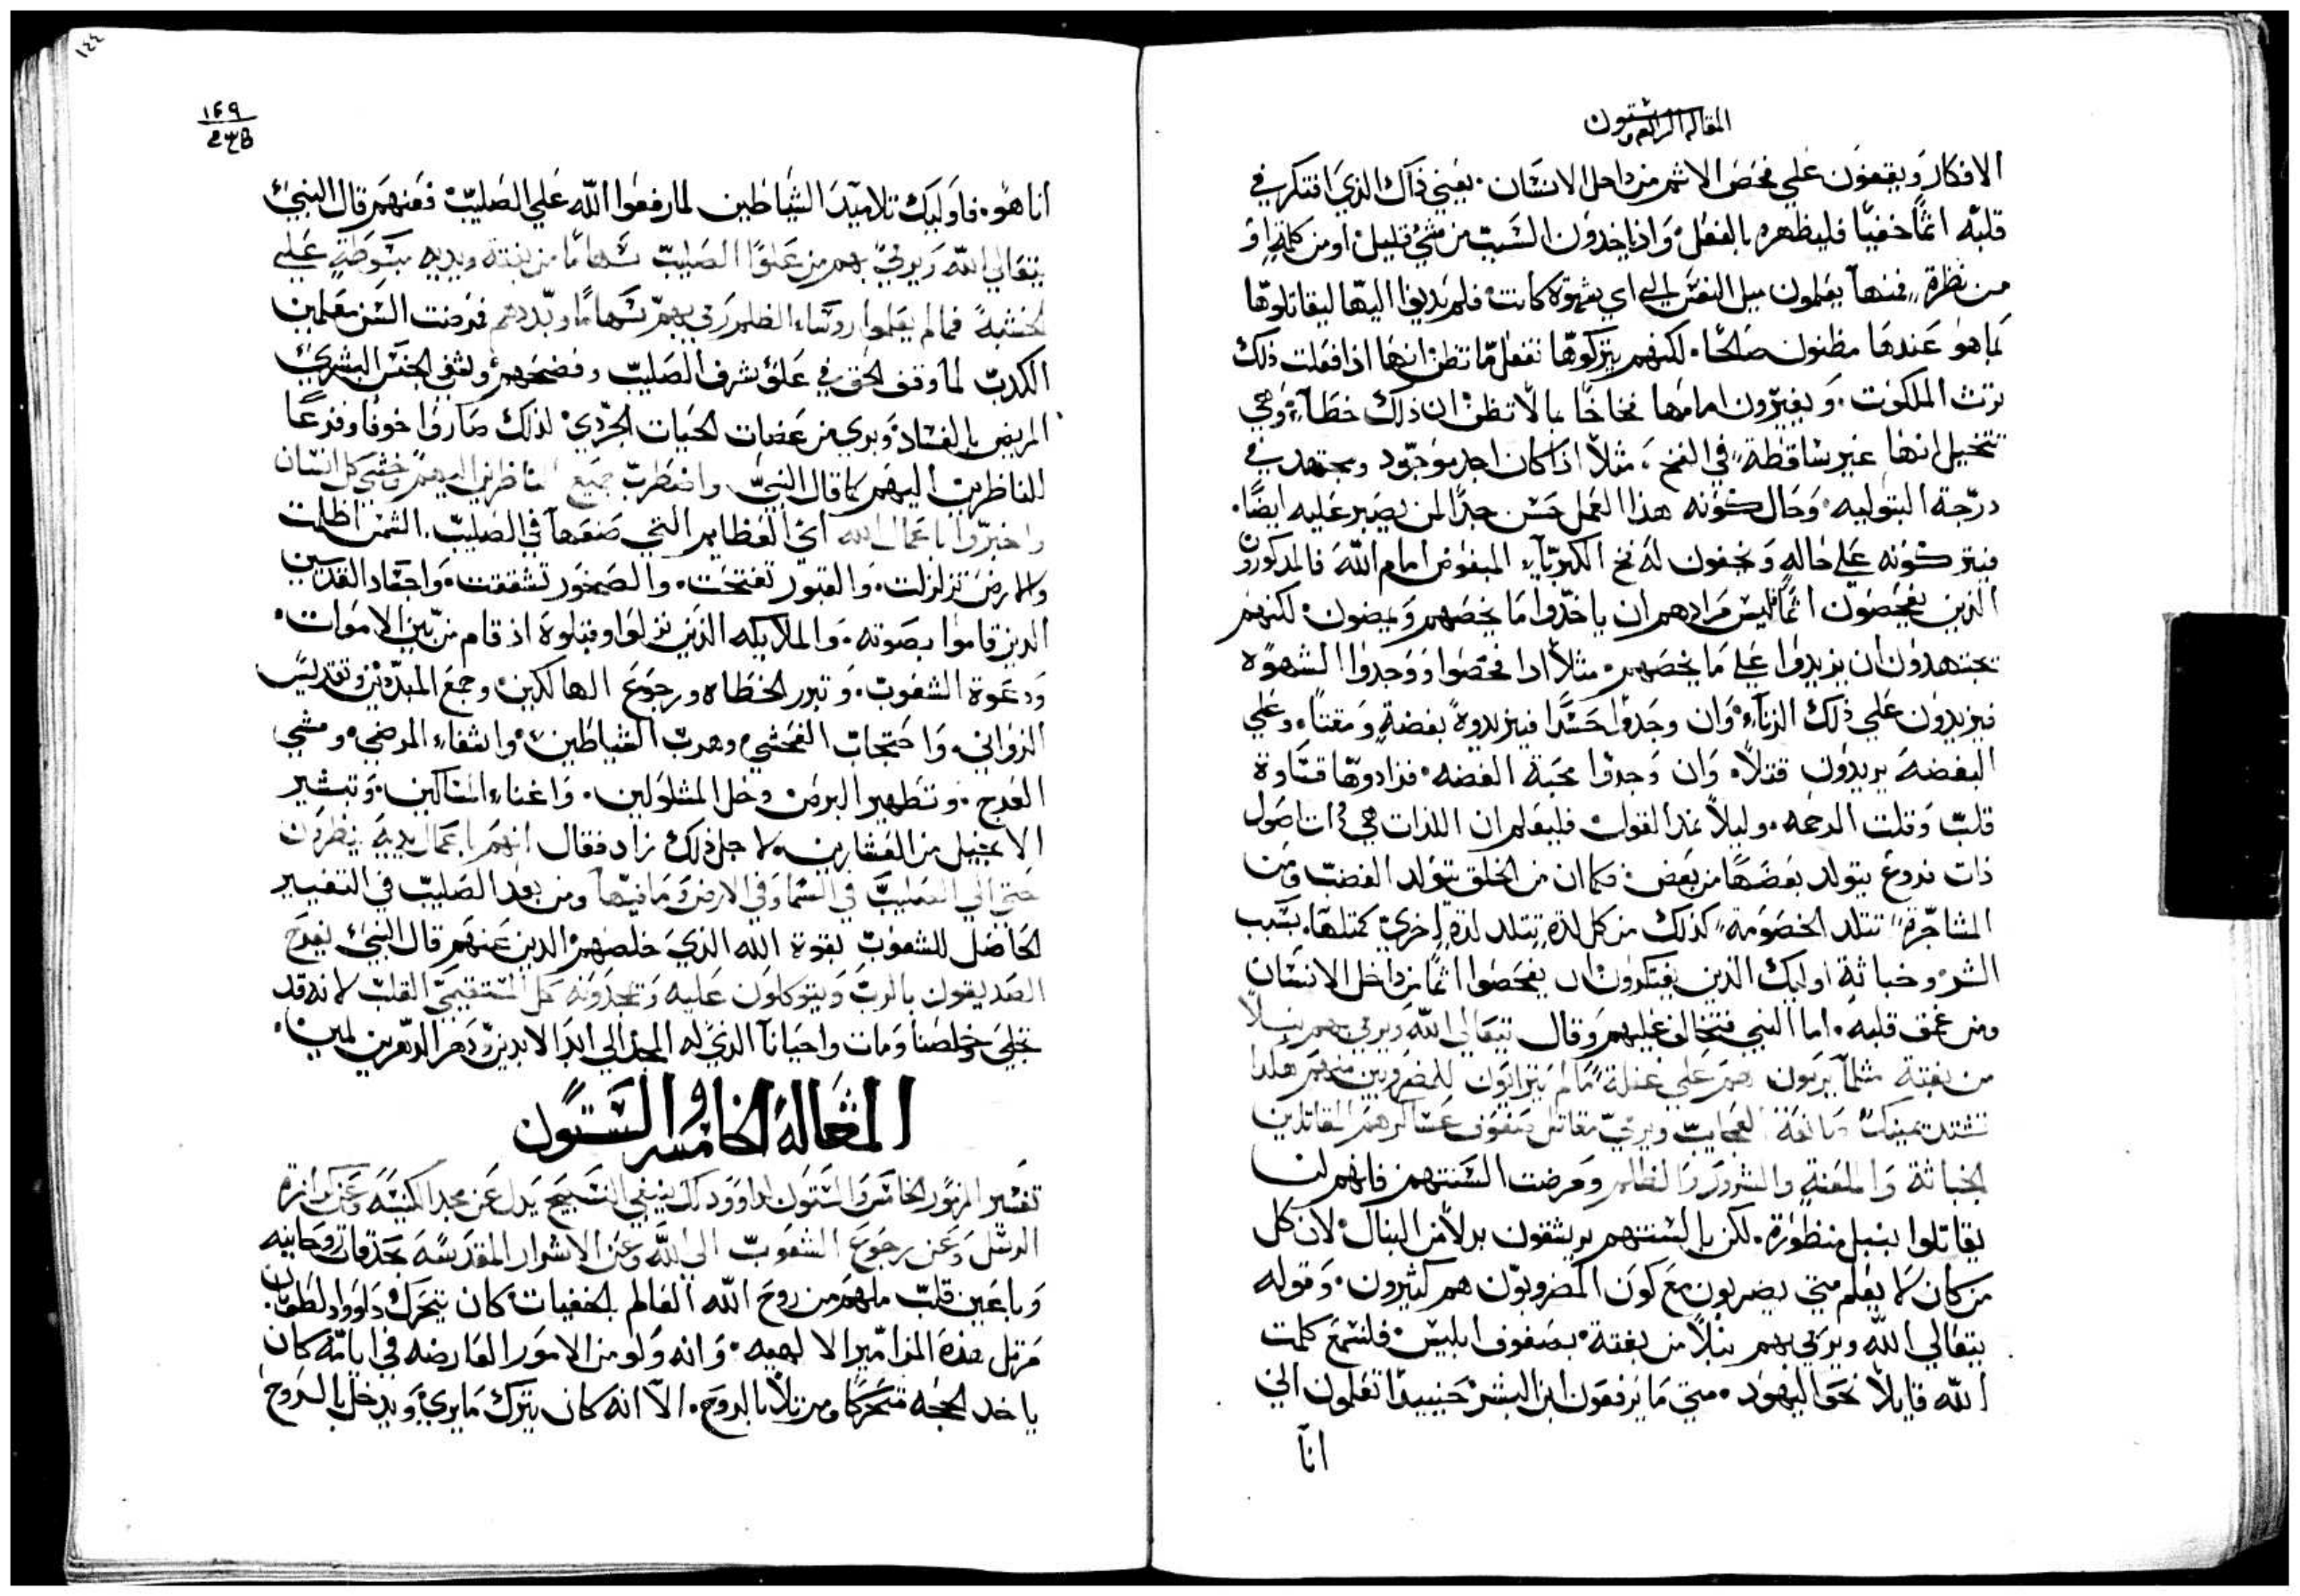 المقاله الرابعه وستون
الافكار ويقعون علي فحص الاثم من داخل الانسان. يعني ذاك الذي افتكر في
قلبه اثمًا خفيًا فليظهره بالفعل. واذ ياخدون السبب من شي قليل اومن كلمة او
من نظرة، فمنها يعلمون ميل النفس الي اي شهوة كانت فلم يديفوا اليها ليقاتلوها
بما هو عندها مظنون صالحًا. لكنهم يتركوها تفعل مما تظن انها اذا فعلت ذلك
ترث الملكوت. ويغيرون امامها فخاخًا بالا تظن ان ذلك خطآء وهي
تتخيل انها غير ساقطة في الفخ، مثلاً اذا كان احد موجود ومجتهد في
درجة البتوليه وحال كونه هذا العمل حسن جدًا لمن يصبر عليه ايضًا.
فيتركونه علي حاله ويخفون له فخ الكبرياء المبغوض امام الله فالمذكورون
الذين يفحصون اثمًا ليس مرادهم ان ياخدوا ما يخصهم ويمضون لكنهم
يجتهدون ان يزيدوا علي ما يخصهم. مثلاً ادا فحصوا ووجدوا الشهوه
فيزيدون علي ذلك الزناء وان وجدوا حسدًا فيزيدوه بغضةٍ ومقتًا. وعلي
البغضه يريدون قتلاً. وان وجدوا محبة الفضه. فزادوها قساوة
قلب وقلت الرحمه. وليلاً نمد القول فليعلم ان اللذات هي ذات اصول
ذات فروع يتولد بعضها من بعض فكما ان من الخلق يتولد الغضب ومن
المشاجرة تتلد الخصومة كذلك من كل لذة يتلد لذة اخري كمثلها. بسبب
الشر وخباثة اوليك الذين يفتكرون ان يفحصوا اثمًا من داخل الانسان
ومن عمق قلبه. اما النبي فتخالف عليهم وقال يتعالي الله ويرمي بهم نبلاً
من بغتة مثلما يرمون هم علي غفلة
الخباثة والملعنة والشرور والظلم ومرضت السنتهم فانهم لن
يقاتلوا بنبل منظورة. لكن بالسنتهم يرشقون بدلاً من النبال لان كل
من كان لا يعلم متي يضربون مع كون المضروبون هم كثيرون. وقوله
يتعالي الله ويرمي بهم نبلاً من بغتة بصفوف ابليس فلنسمع كلمت
الله قايلاً نحو اليهود. متي ما ترفعون ابن البشر حينيدا تعلمون اني
انا
١٤٤
١٤٩
انا هو. فاوليك تلاميد الشياطين لما رفعوا الله علي الصليب فعنهم قال النبي
يتعالي الله ويرمي بهم من علو الصليب سهامًا من بغتة ويديه مبسوطة علي
الخشبة فما لم يعلموا روساء الظلم رمي بهم سهامًا وبددهم فمرضت السن معلمين
الكدب لما وقف الحق في علو شرف الصليب وفضحهم وشفي الجنس البشري
المريض بالفساد وبري من عضات الحيات الجردي لذلك صاروا خوفًا وفزعًا
للناظرين اليهم كما قال النبي واضطرب جميع الناظرين اليهم وخشي كل انسان
واخبروا باعمال الله اي العظايم التي صنعها في الصليب. الشمس اظلمت
والارض تزلزلت. والقبور تفتحت. والصخور تشققت. واجساد القديسين
الدين قاموا بصوته. والملايكه الذين نزلوا وقبلوه اذ قام من بين الاموات.
ودعوة الشعوب. وتبرر الخطاه ورجوع الهالكين وجمع المبددين وتقديس
الزواني. واحتجات الفحشي وهرب الشياطين واشفاء المرضي ومشي
العرج. وتطهير البرص وحل المشلولين. واغناء المساكين. وتبشير
الانجيل من العشارين. لاجل ذلك زاد فقال انهم اعمال يديه ينظرون
حتي الي الصليب في السما وفي الارض وما فيها ومن بعد الصليب في التغيير
الحاصل للشعوب بقوة الله الذي خلصهم الدين عنهم قال النبي يفرح
الصديقون بالرب ويتوكلون عليه وتمجدونه كل المستقيمي القلب لانه قد
تجلي وخلصنا ومات واحيانا الذي له المجد الي ابد الابدين ودهر الداهرين امين.
المقالة الخامسه والستون
تفسير المزمور الخامس والستون لداوود لك ينبغي التسبيح يدل عن مجد الكنيسه وعن كرازة
الرسل وعن رجوع الشعوب الي الله وعن الاسرار المقدسه بحدقات روحانيه
وباعين قلب ملهم من روح الله العالم بالخفيات كان يتحرك داوود الطوبان.
مرتل هذه المزامير الالهيه. وانه ولو من الامور العارضه في ايامه كان
ياخد الحجه متحركًا ومرتلاً بالروح. الا انه كان يترك ما يري ويدخل بالروح